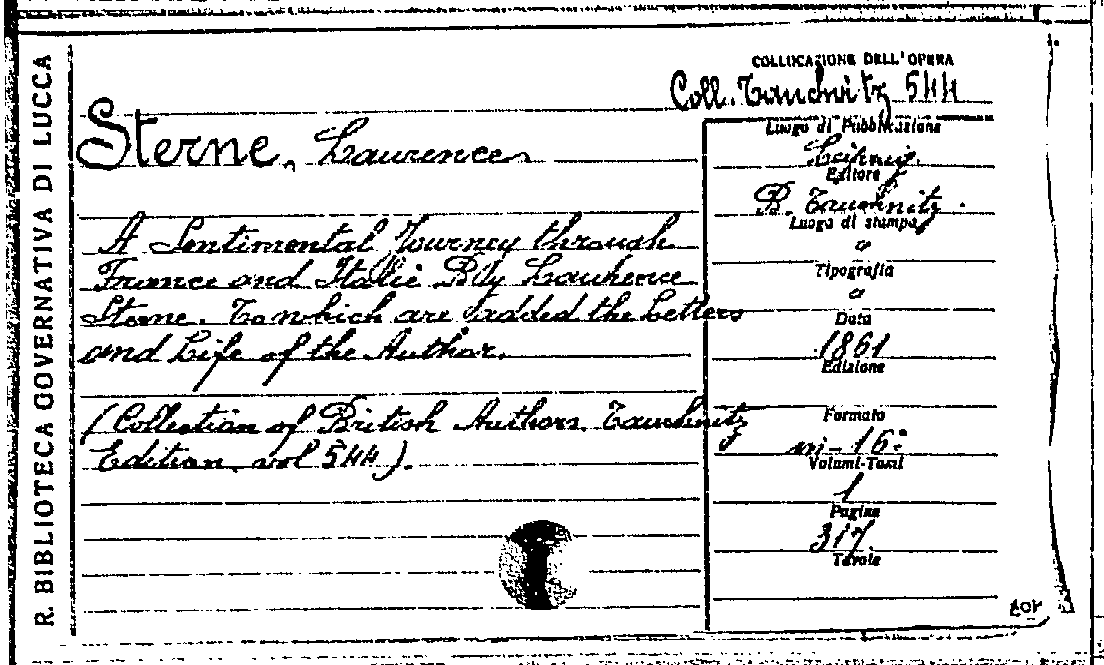 R. BIBLIOTECA GOVERNATIVA DI LUCCA
COLLOCAZIONE DELL'OPERA
Coll. Tauchnitz 544
Sterne, Laurence
A Sentimental Journey through
France and Italie By Laurence
Sterne. To which are added the Letters
and Life of the Author.
(Collection of British Authors. Tauchnitz
Edition vol 544).
Luogo di Pubblicazione
Leipzig
Editore
B. Tauchnitz.
Luogo di stampa
Tipografia
Data
1861
Edizione
Formato
in-16°
Volumi-Tomi
1
Pagine
317
Tavole